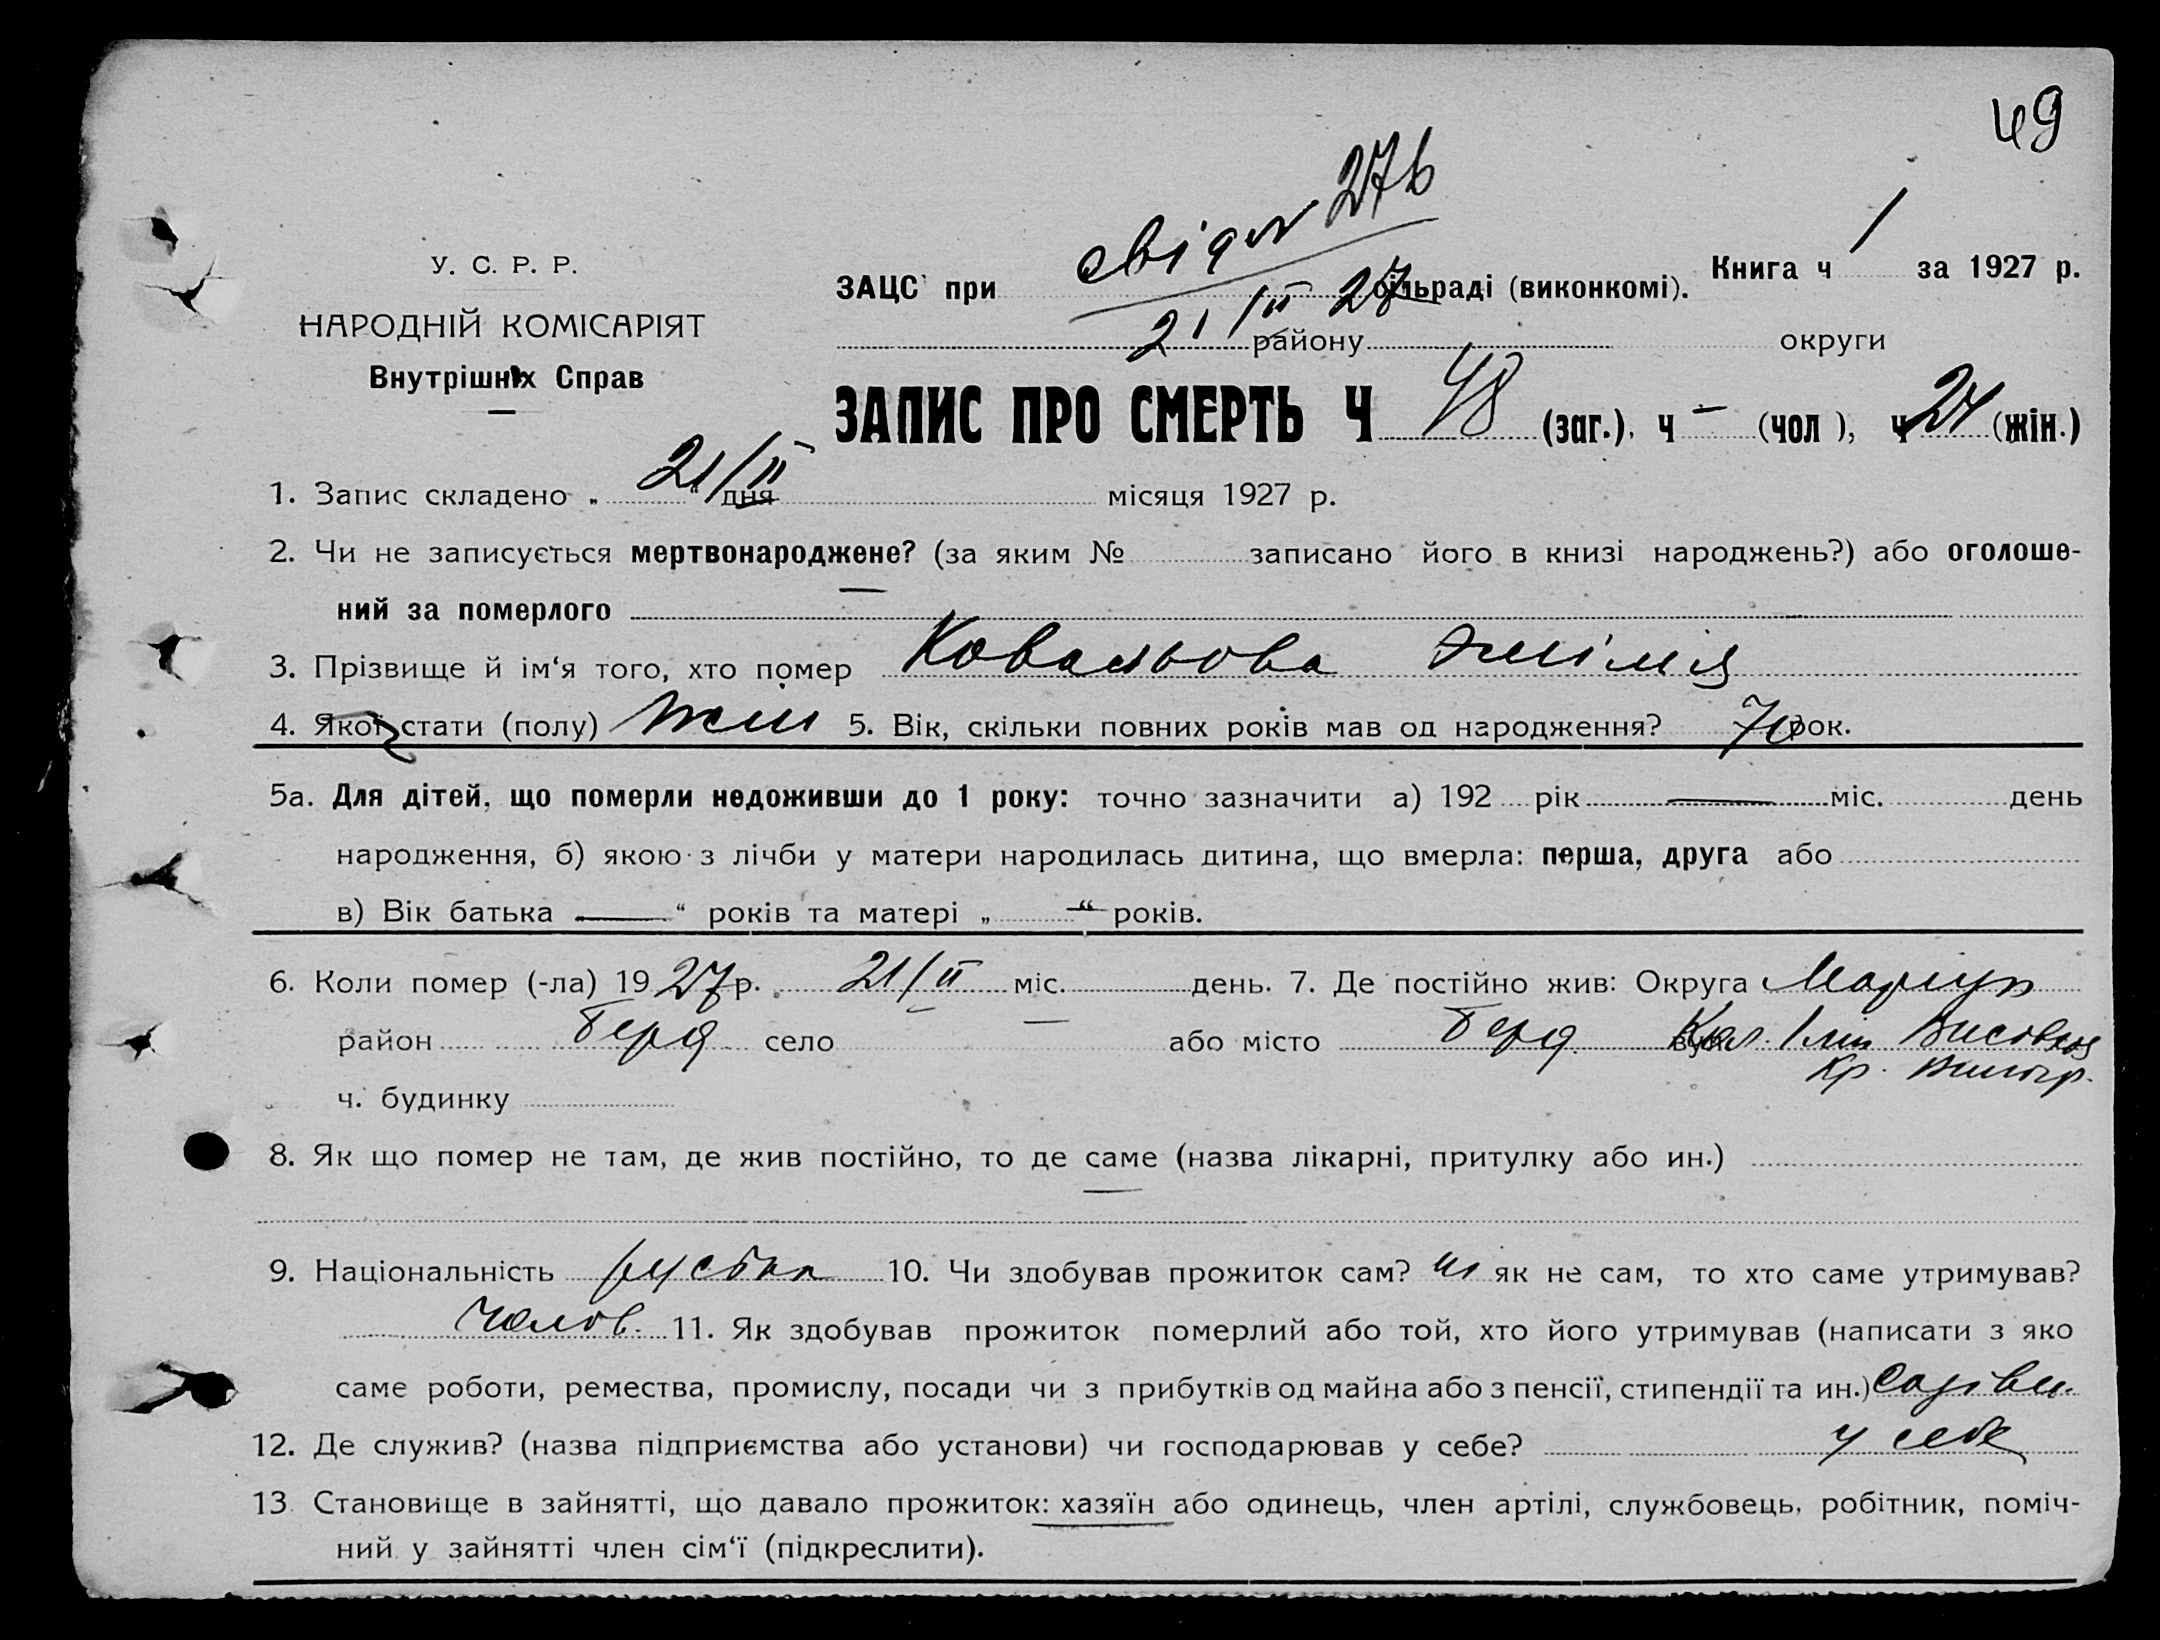 49
свідоц 276
21/II 27
У. С. Р. Р.
НАРОДНІЙ КОМІСАРІЯТ
Внутрішніх Справ
ЗАЦС при сільраді (виконкомі). Книга ч 1 за 1927 р.
району округи
ЗАПИС ПРО СМЕРТЬ Ч 48 (заг.), ч — (чол), ч 24 (жін.)
1. Запис складено „ 21/II “ дня місяця 1927 р.
2. Чи не записується мертвонароджене? (за яким № записано його в книзі народжень?) або оголоше-
ний за померлого —
3. Прізвище й ім‘я того, хто помер Ковальова
4. Якої стати (полу) жін 5. Вік, скільки повних років мав од народження? 70 рок.
5а. Для дітей, що померли недоживши до 1 року: точно зазначити а) 192 рік — міс. день
народження, б) якою з лічби у матери народилась дитина, що вмерла: перша, друга або
в) Вік батька — “ років та матері „ — “ років.
6. Коли помер (-ла) 1927 р. 21/II міс. день. 7. Де постійно жив: Округа Маріуп
район Берд село — або місто Берд. вул.
Кр.
ч. будинку
8. Як що помер не там, де жив постійно, то де саме (назва лікарні, притулку або ин.)
—
9. Національність руська 10. Чи здобував прожиток сам? ні як не сам, то хто саме утримував?
Чолов. 11. Як здобував прожиток померлий або той, хто його утримував (написати з яко
саме роботи, ремества, промислу, посади чи з прибутків од майна або з пенсії, стипендії та ин.)
12. Де служив? (назва підприємства або установи) чи господарював у себе? у себе
13. Становище в зайнятті, що давало прожиток: хазяїн або одинець, член артілі, службовець, робітник, поміч-
ний у зайнятті член сім‘ї (підкреслити).